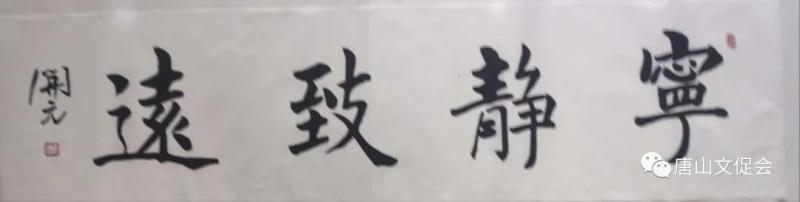 寧静致遠
開元
唐山文促会